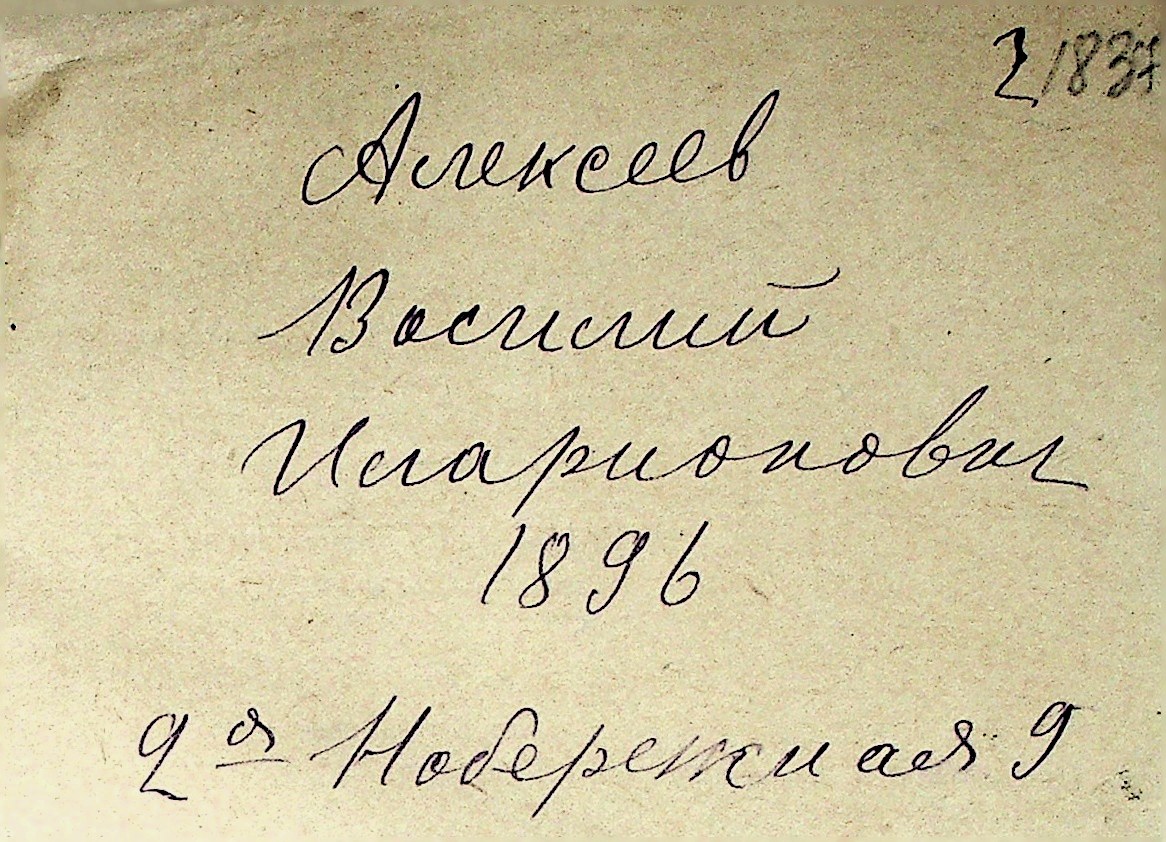 2/1837
Алексеев
Василий
Иларионович
1896
2 ая Набережная 9